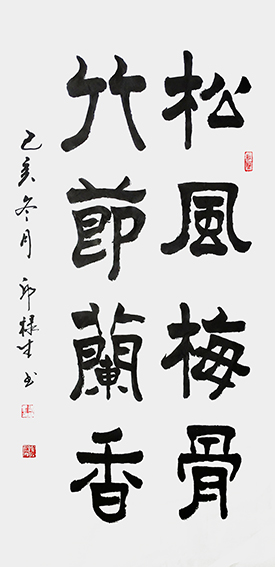 松風梅骨
竹節蘭香
己亥冬月 邱祿生书